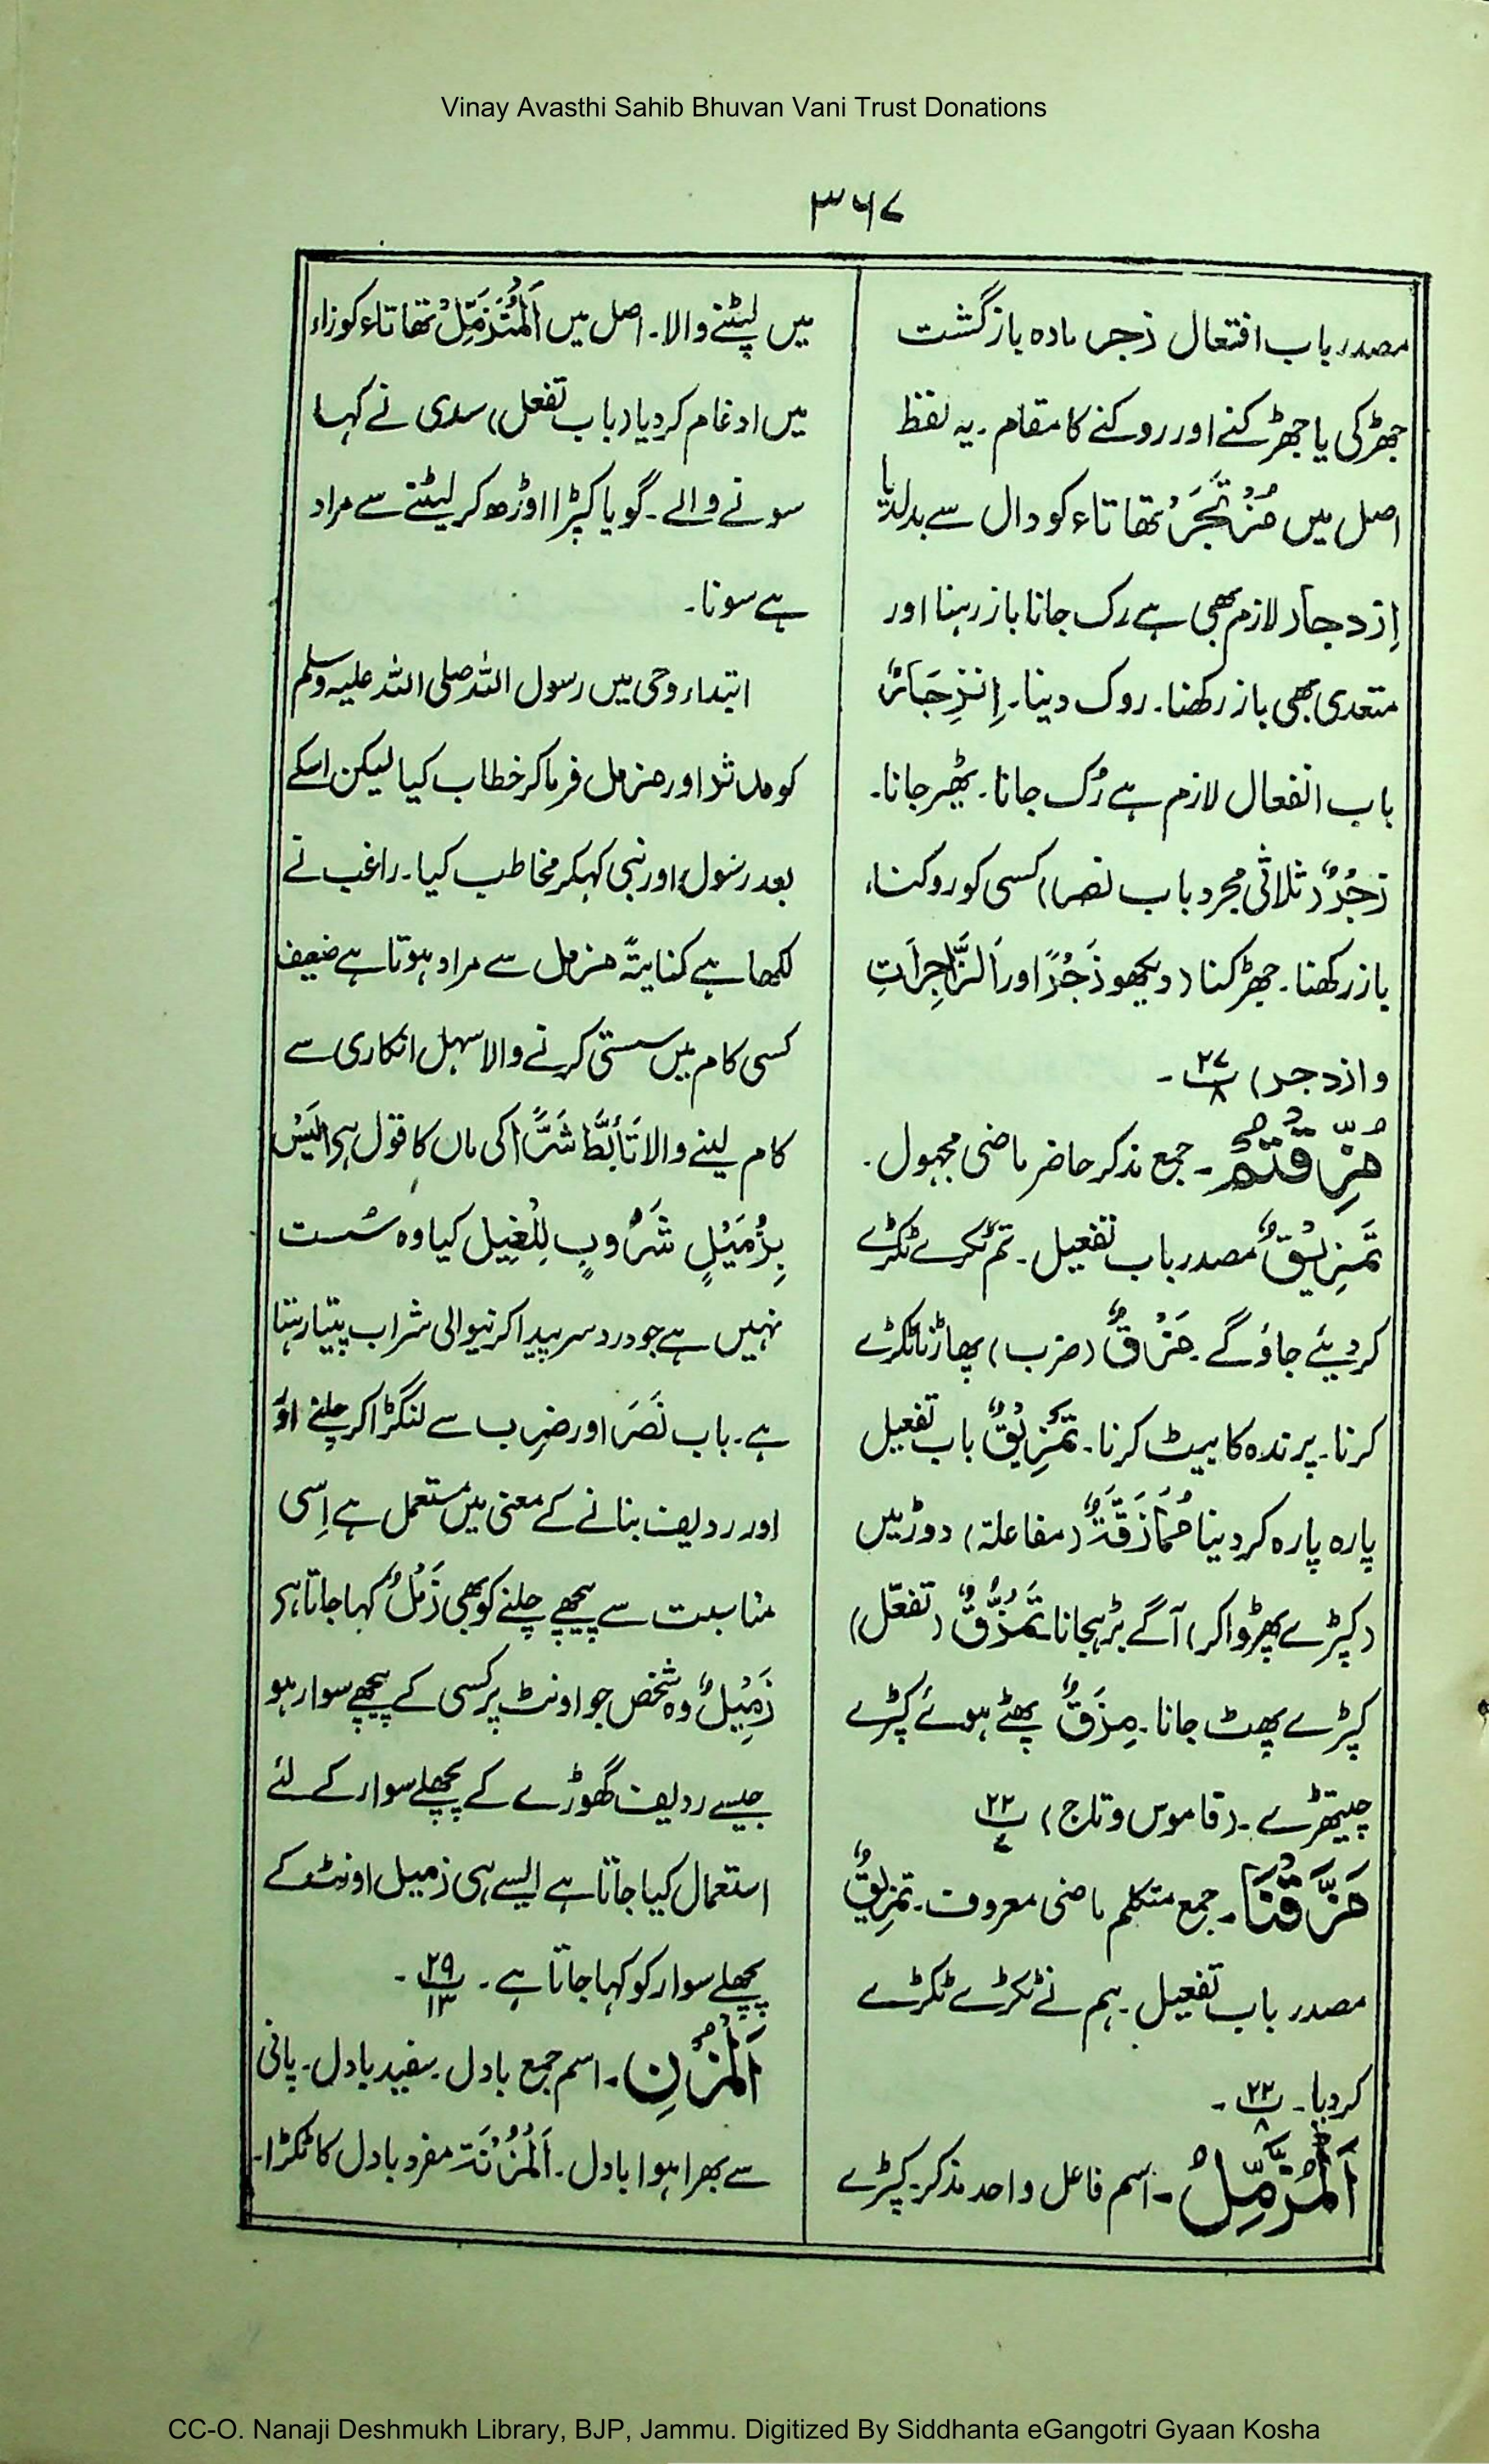 Vinay Avasthi Sahib Bhuvan Vani Trust Donations
۳۶۷
مصدر باب افتعال زجر مادہ بازگشت
جھڑکی یا جھڑکنے اور روکنے کا مقام۔ یہ لفظ
اصل میں مُزْتَجَرٌ تھا تاء کو دال سے بدلدیا
اِزدجار لازم بھی ہے رک جانا باز رہنا اور
متعدی بھی باز رکھنا۔ روک دینا۔ اِنْزِجَارٌ
باب انفعال لازم ہے رُک جانا۔ ٹھیر جانا۔
زَجْرٌ (ثلاثی مجرد باب نصر) کسی کو روکنا،
باز رکھنا۔ جھڑکنا (دیکھو زَجْرًا اور اَلزَّاجِرَاتِ
وازدجر) ۲۷پ۸ ۔
مُزِّقْتُمْ۔ جمع مذکر حاضر ماضی مجہول۔
تَمْزِیْقٌ مصدر باب تفعیل۔ تم ٹکڑے ٹکڑے
کردیئے جاؤ گے۔ مَزْقٌ (ضرب) پھاڑنا ٹکڑے
کرنا۔ پرندہ کا بیٹ کرنا۔ تَمْزِیْقٌ باب تفعیل
پارہ پارہ کردینا مُمَازَقَةٌ (مفاعلۃ) دوڑ میں
(کپڑے پھڑوا کر) آگے بڑہجانا تَمَزُّقٌ (تفعّل)
کپڑے پھٹ جانا۔ مِزَقٌ پھٹے ہوئے کپڑے
چیتھڑے۔ (قاموس وتاج) ۲۲پ۷
مَزَّقْنَا۔ جمع متکلم ماضی معروف۔ تمزیقٌ
مصدر باب تفعیل۔ ہم نے ٹکڑے ٹکڑے
کردیا۔ ۲۲پ۸ ۔
اَلْمُزَّمِّلُ۔ اسم فاعل واحد مذکر۔ کپڑے
میں لپٹنے والا۔ اصل میں اَلْمُتَزَمِّلُ تھا تاء کو زاء
میں ادغام کردیا (باب تفعل) سدی نے کہا
سونے والے۔ گویا کپڑا اوڑھ کر لیٹنے سے مراد
ہے سونا۔
ابتداء وحی میں رسول اللہ صلی اللہ علیہ وسلم
کو مدثر اور مزمل فرما کر خطاب کیا لیکن اسکے
بعد رسول اور نبی کہکر مخاطب کیا۔ راغب نے
لکھا ہے کنایۃً مزمل سے مراد ہوتا ہے ضعیف
کسی کام میں سستی کرنے والا سہل انکاری سے
کام لینے والا تَأَبَّطَ شَرًّا کی ماں کا قول ہے اَلَیْسَ
بِزُمَیْلٍ شَرُوبٍ لِلْغِیْلِ کیا وہ سُست
نہیں ہے جو درد سر پیدا کرنیوالی شراب پیتا رہتا
ہے۔ باب نَصَرَ اور ضرب سے لنگڑا کر چلنے اوَر
اور ردیف بنانے کے معنی میں مستعمل ہے اِسی
مناسبت سے پیچھے چلنے کو بھی زَمْلٌ کہا جاتا ہے
زَمِیْلٌ وہ شخص جو اونٹ پر کسی کے پیچھے سوار ہو
جیسے ردیف گھوڑے کے پچھلے سوار کے لئے
استعمال کیا جاتا ہے ایسے ہی زمیل اونٹ کے
پچھلے سوار کو کہا جاتا ہے۔ ۲۹پ۱۳ ۔
اَلْمُزْنِ۔ اسم جمع بادل۔ سفید بادل۔ پانی
سے بھرا ہوا بادل۔ اَلْمُزْنَۃ مفرد بادل کا ٹکڑا۔
CC-O. Nanaji Deshmukh Library, BJP, Jammu. Digitized By Siddhanta eGangotri Gyaan Kosha